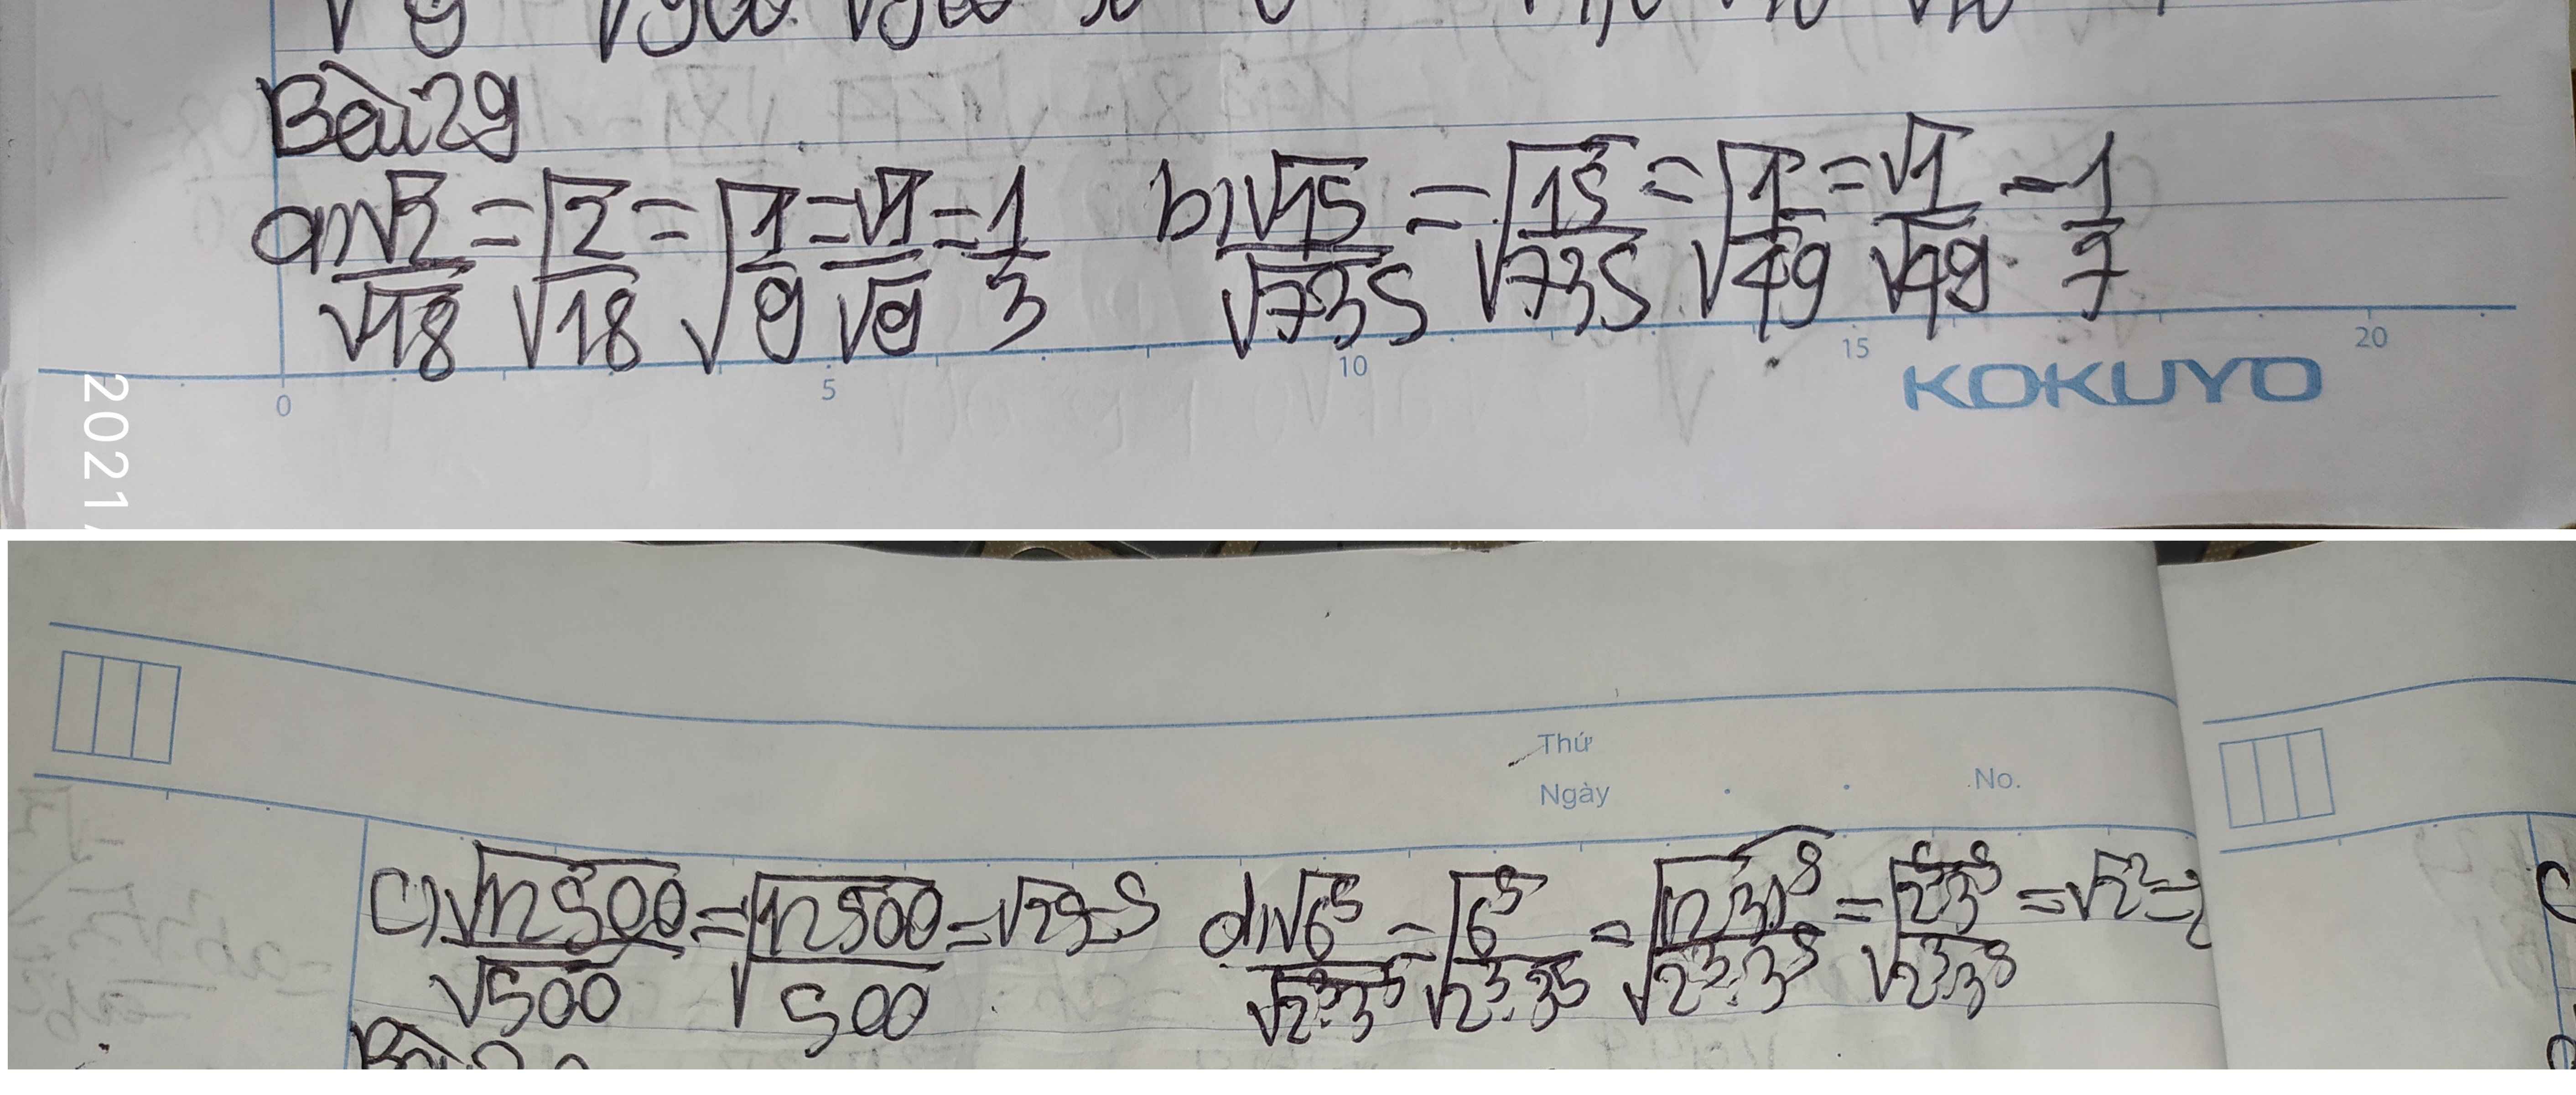 Bài 29
a) √2/√18 = √(2/18) = √(1/9) = √1/√9 = 1/3 b) √15/√735 = √(15/735) = √(1/49) = √1/√49 = 1/7
0 5 10 15 20
KOKUYO
2021
Thứ
Ngày No.
c) √12500/√500 = √(12500/500) = √25 = 5 d) √6⁵/√2³.3⁵ = √(6⁵/2³.3⁵) = √((2.3)⁵/2³.3⁵) = √(2⁵3⁵/2³3⁵) = √2² = 2